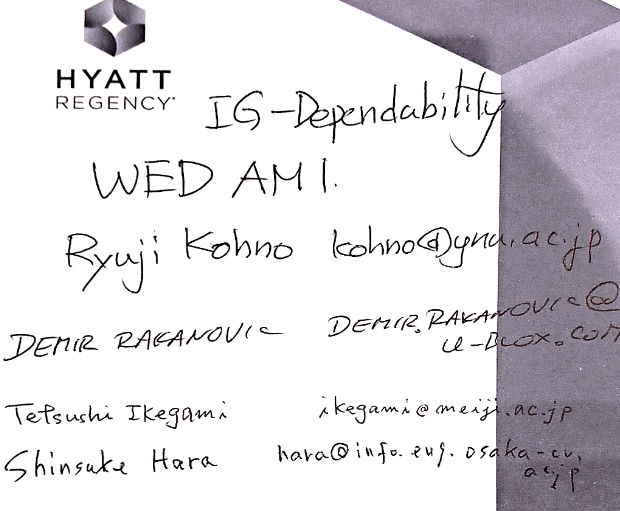 HYATT
REGENCY
IG-Dependability
WED AM1.
Ryuji Kohno kohno@ynu.ac.jp
DEMIR RAKANOVIC DEMIR.RAKANOVIC@
u-BLOX.COM
Tetsushi Ikegami ikegami@meiji.ac.jp
Shinsuke Hara hara@info.eng.osaka-cu.
ac.jp